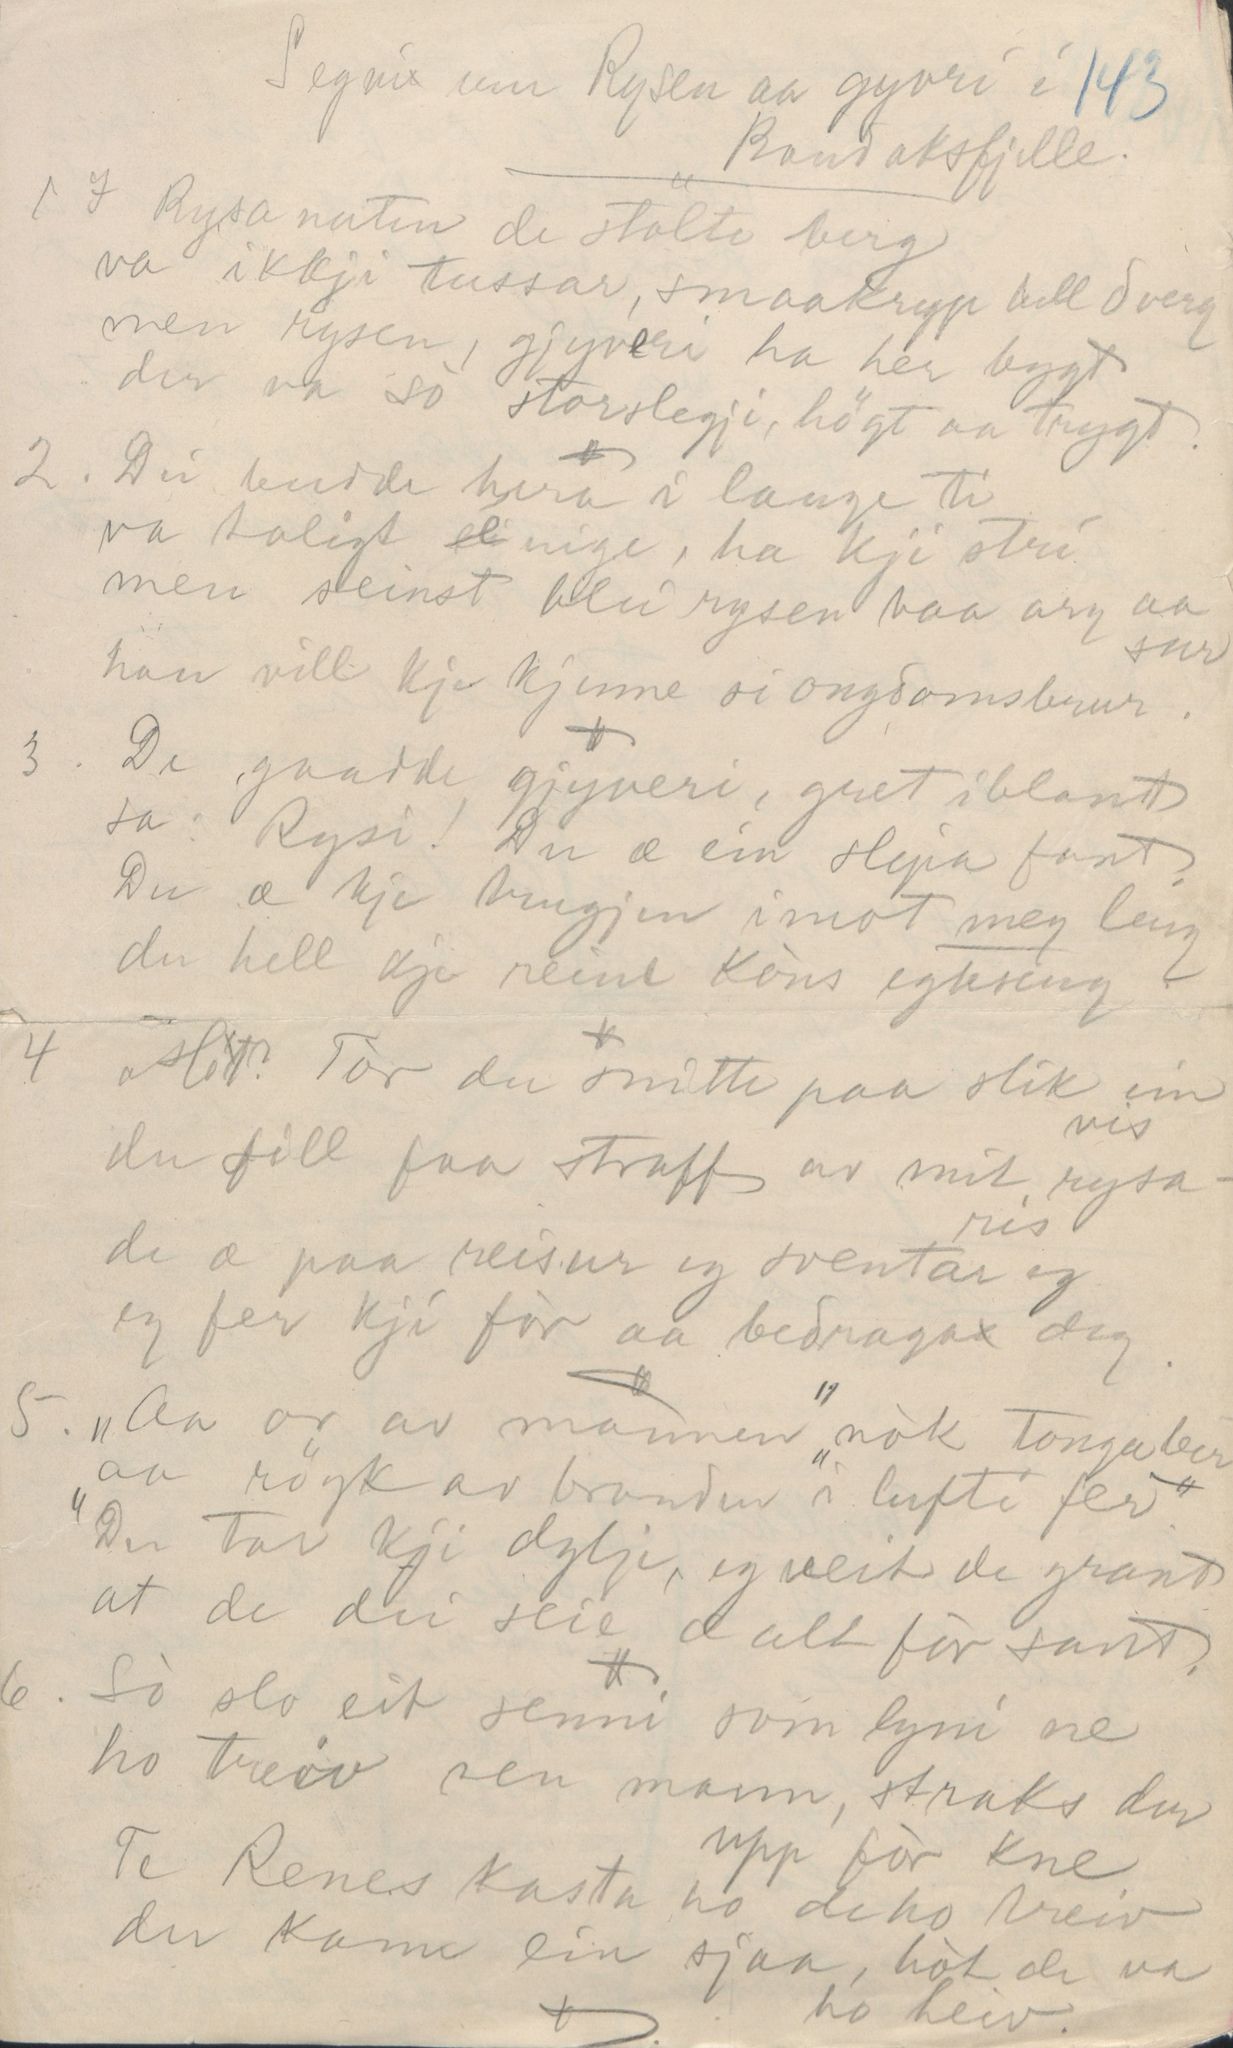 Segnix um Rysen aa gyvri i 143
Bandaksfjille.
1 I Rysanuten de stolte berg
va ikkji tussar, smaakryp hell dverg
men rysen, gjyveri ha her bygt
der va so storslegji, högt aa trygt.
2. Dei budde hera i lange ti
va taligt einige, ha kji stri
men seinst blei rysen baa arg aa
sur
han vill kje kjenne si ongdomsbrur.
3. De gaadde gjyveri, gret iblant
sa: Rysi! Du æ ein slepa fant,
Du æ kje hugjen imot meg leng
du hell kje reine Kòns egteseng.
4 Tòr du snitte paa slik ein
vis
du sill faa straff av mit rysa-
ris
de æ paa reisur eg sventar eg
eg fer kji fòr aa bedragax deg.
5. "Aa or av mannen" nòk tonga ber
aa rögk av branden "i lufti fer"
"Du tar kji dylje, eg veit de grant
at de dei seie æ alt fòr sant.
6. Sò slo eit senni som lyni ne
ho treiv sen mann, straks der
upp fòr kne
Te Renes kasta ho de ho treiv
der kome ein sjaa, hòt de va
ho heiv.